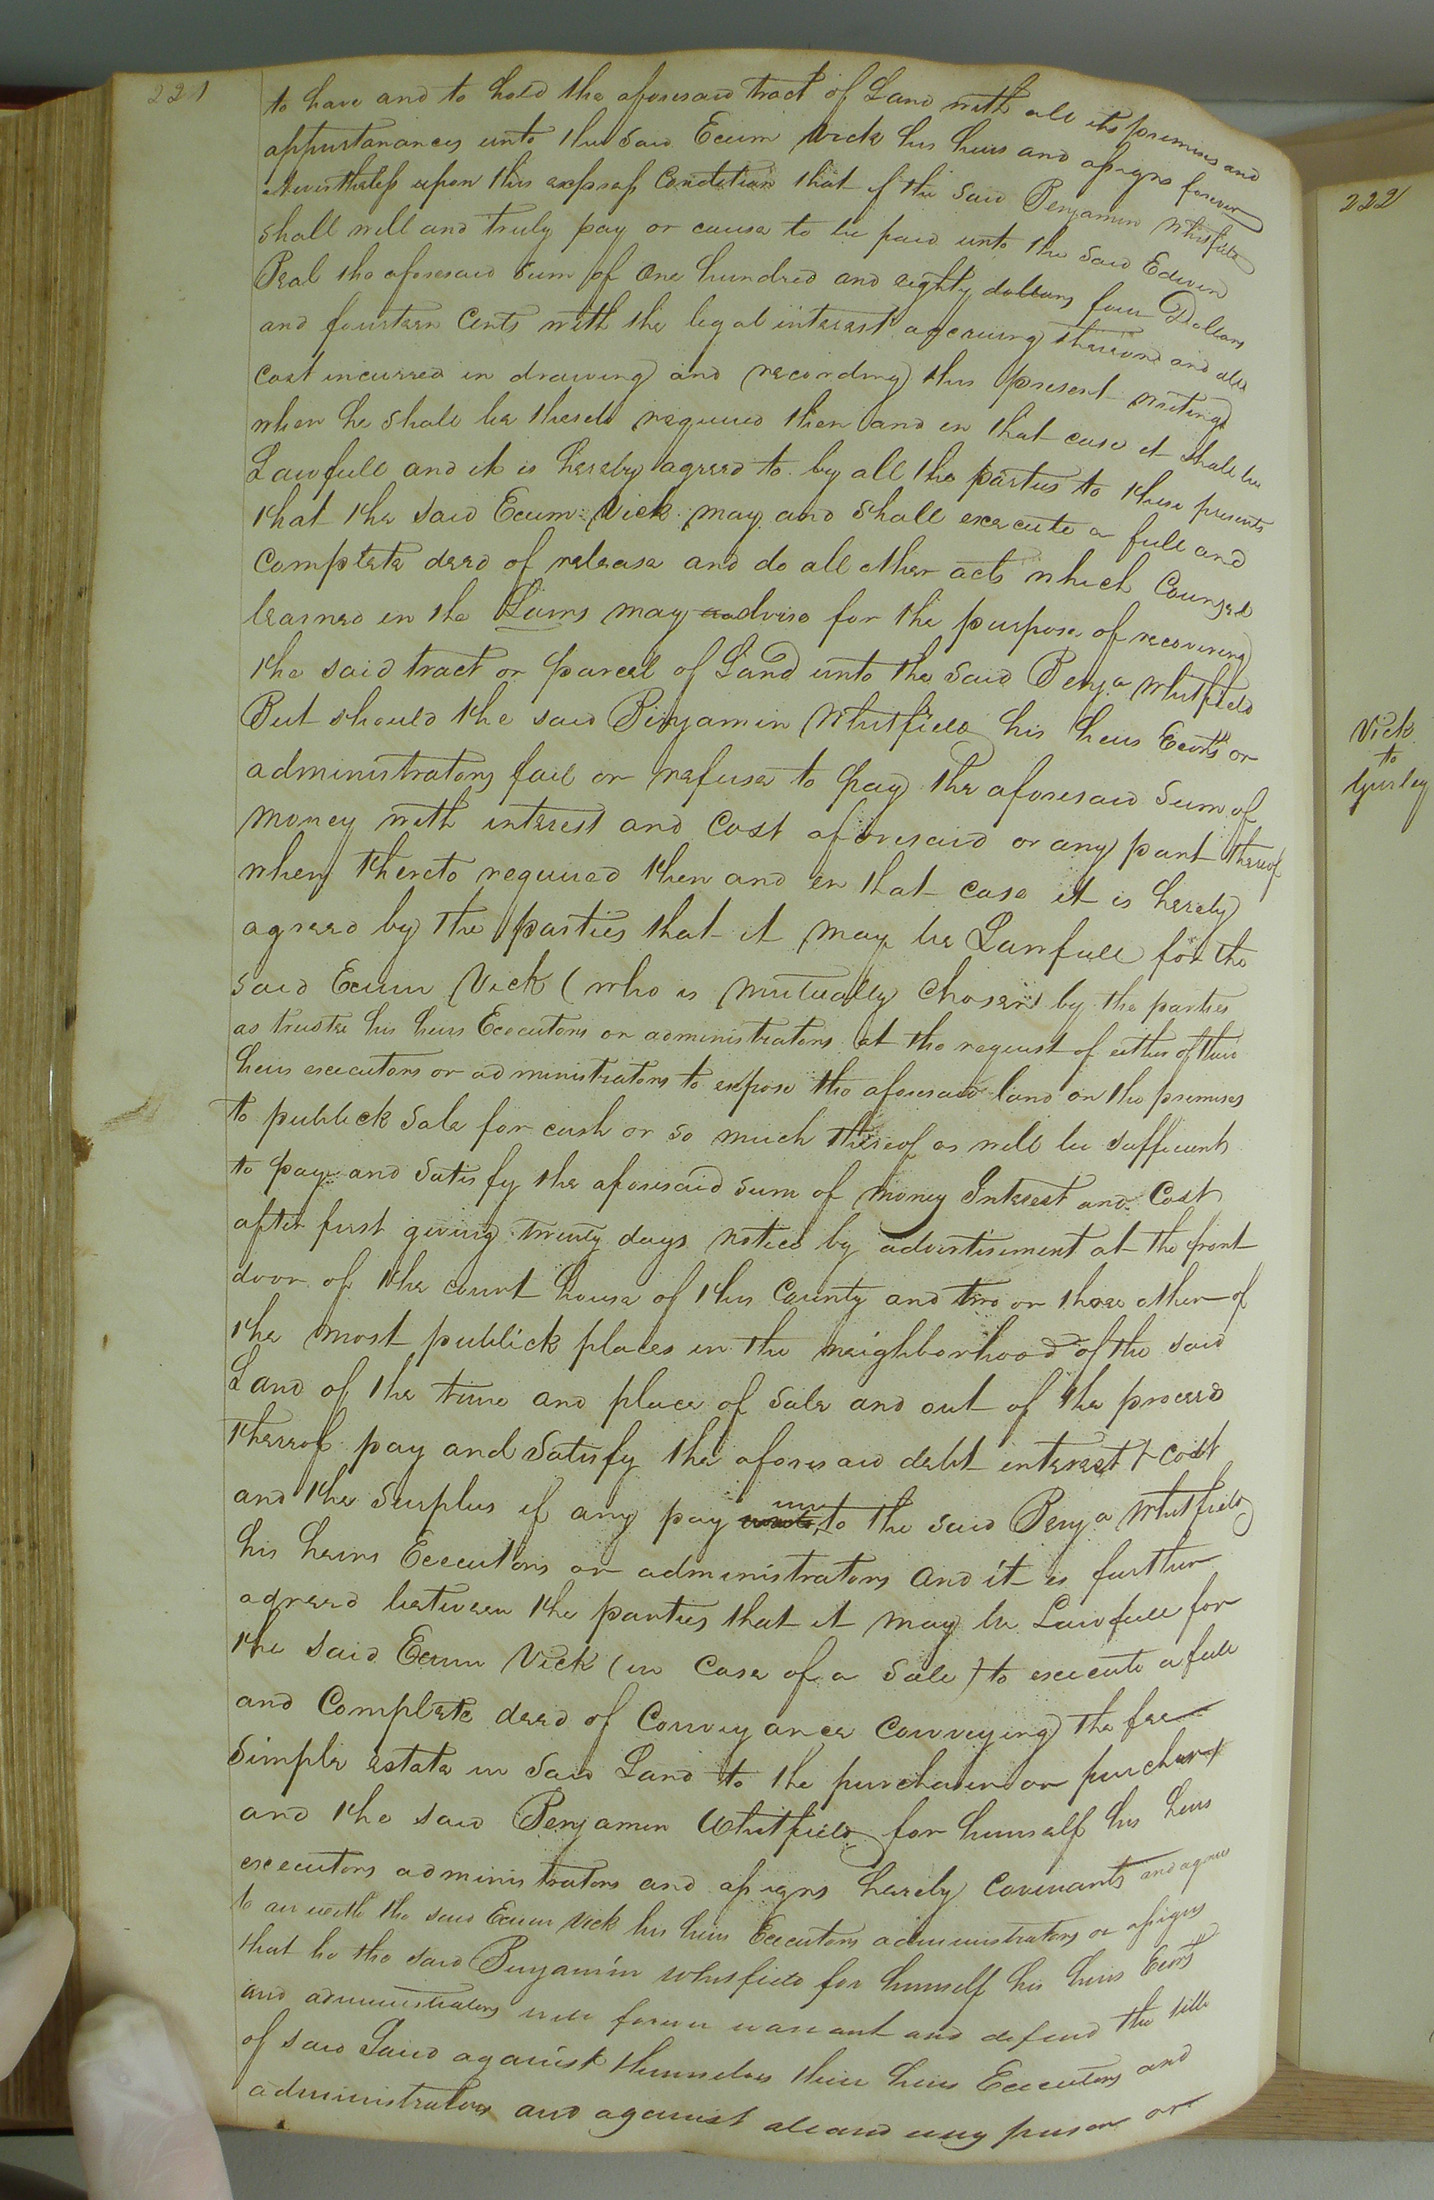 221
to have and to hold the aforesaid tract of Land with all its premises and
appurtanances unto the said Exum Vick his heirs and assigns forever
Nevertheless upon this express Condition that if the said Benjamin Whitfield
shall well and truly pay or cause to be paid unto the said Edwin
Beal the aforesaid Sum of One hundred and eighty dollars four Dollars
and fourteen Cents with the legal interest accruing thereon and all
Cost incurred in drawing and recording this present writing
when he shall be thereto required then and in that case it shall be
Lawfull and it is hereby agreed to by all the parties to these presents
that the said Exum Vick may and shall execute a full and
Complete deed of release and do all other acts which Counsel
learned in the Laws may advise for the purpose of recovering
the said tract or parcel of Land unto the said Benja Whitfield
But should the said Binjamin Whitfield his heirs Exors or
administrators fail or refuse to pay the aforesaid Sum of
money with interest and Cost aforesaid or any part thereof
when thereto required then and in that case it is hereby
agreed by the parties that it may be Lawfull for the
said Exum Vick (who is mutually Chosen by the parties
as trustee his heirs Executors or administrators at the request of either of their
heirs executors or administrators to expose the aforesaid land on the premises
to publick Sale for cash or so much thereof as will be sufficient
to pay and Satisfy the aforesaid Sum of money Interest and Cost
after first giving twenty days notice by advertisement at the front
door of the court house of this County and two or three other of
the most publick places in the neighborhood of the said
Land of the time and place of Sale and out of the proceed
thereof pay and Satisfy the aforesaid debt interest & cost
and the Surplus if any pay unto the said Benja Whitfield
his heirs Executors or administrators and it is further
agreed between the parties that it may be Lawfull for
the said Exum Vick (in Case of a Sale) to execute a full
and Complete deed of Conveyance Conveying the fee
Simple estate in said Land to the purchaser or purchars
and the said Benjamin Whitfield for himself his heirs
executors administrators and assigns hereby Covenants and agrees
to an with the said Exum Vick his heirs Executors administrators or assigns
that he the said Benjamin Whitfield for himself his heirs Exors
and administrators will forever warrant and defend the title
of said Land against themselves their heirs Executors and
administrators and against all and any person or
222
Vick
to
Gurley